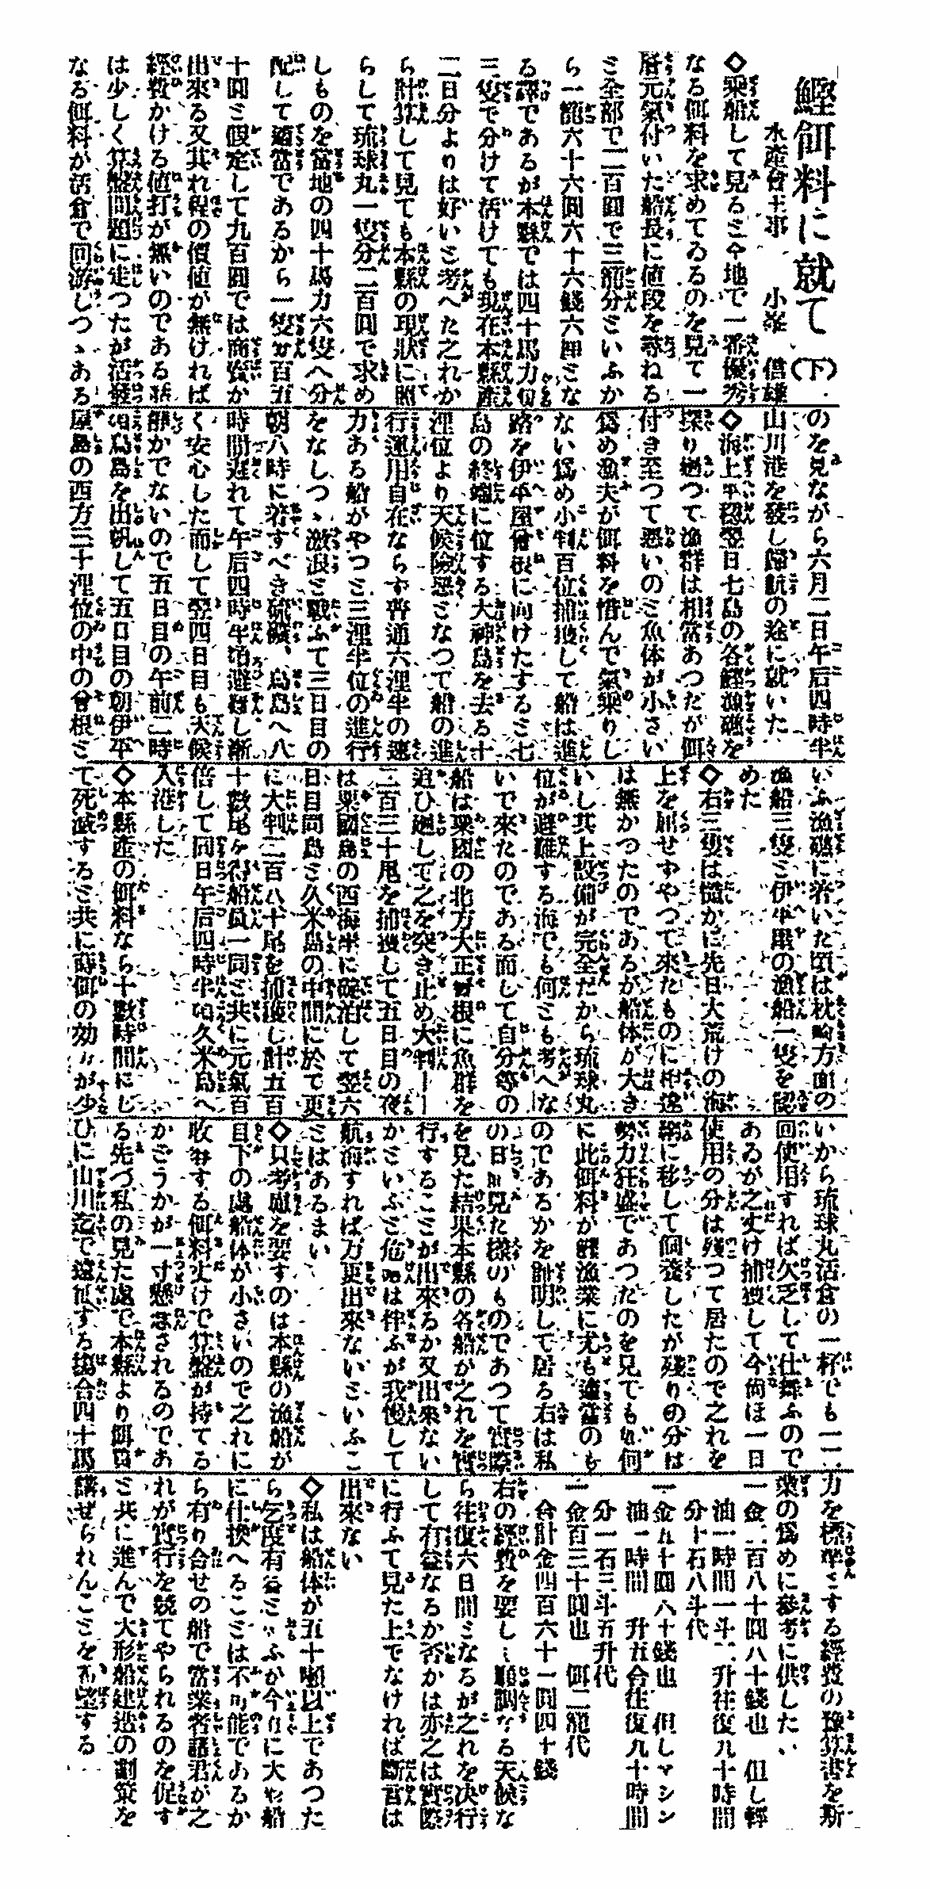 鰹餌料に就て(下)
水産會主事 小峯
◇乘船して見るミ今地で一番優秀
なる餌料を求めてゐるのを見て一
層元氣付いた船長に値段を尋ねる
ミ全部で二百圓で三籠分ミいふか
ら一籠六十六圓六十六錢六厘ミな
る譯であるが本縣では四十馬力
三隻で分けて活けても現在本縣産
二日分よりは好いミ考へた之れか
ら計算して見ても本縣の現狀に照
らして琉球丸一隻分二百圓で求め
しものを當地の四十馬力六隻へ分
配して適當であるから一隻分百五
十圓ミ假定して九百圓では商賣か
出來る又其れ程の價値が無ければ
經費かける値打が無いのである話
は少しく算盤問題に走つたが活潑
なる餌料が活倉で回游しつゝある
のを見ながら六月二日午后四時半
山川港を發し歸航の途に就いた
◇海上平穩翌日七島の各鰹漁礁を
探り廻つて漁群は相當あつたが餌
付き至つて惡いのミ魚体が小さい
爲め漁夫が餌料を惜んで氣乘りし
ない爲め小判百位捕獲して船は進
路を伊平屋曾根に向けたするミ七
島の終端に位する大神島を去る十
浬位より天候險惡ミなつて船の進
行運用自在ならず普通六浬半の速
力ある船がやつミ三浬半位の進行
をなしつゝ激浪ミ戰ふて三日目の
朝八時に着すべき硫礦、鳥島へ八
時間遲れて午后四時半頃避難し漸
く安心した而して翌四日目も天候
靜かでないので五日目の午前二時
頃鳥島を出帆して五日目の朝伊平
屋島の西方三十浬位の中の曾根ミ
いふ漁礁に着いた頃は枕崎方面の
漁船三隻ミ伊平屋の漁船一隻を認
めた
◇右三隻は慥かに先日大荒けの海
上を屈せずやつて來たものに相違
は無かつたのであるが船体が大き
いし其上設備が完全だから琉球丸
位が避難する海でも何ミも考へな
いで來たのである而して自分等の
船は粟國の北方大正曾根に魚群を
追ひ廻して之を突き止め大判一
二百三十尾を捕獲して五日目の夜
は粟國島の西海岸に碇泊して翌六
日目同島ミ久米島の中間に於て更
に大判二百八十尾を捕獲し計五百
十數尾を得船員一同ミ共に元氣百
倍して同日午后四時半頃久米島へ
入港した
◇本縣産の餌料なら十數時間にし
て死滅するミ共に蒔餌の効力が少
いから琉球丸活倉の一杯でも一二
回使用すれば欠乏して仕舞ふので
あるが之丈け捕獲して今尚ほ一日
使用の分は殘つて居たので之れを
網に移して飼養したが殘りの分は
勢力狂盛であつたのを見ても如何
に此餌料が鰹漁業に尤も適當のも
のであるかを證明して居る右は私
の日 見た樣のものであつて實際
を見た結果本縣の各船が之れを實
行するこミが出來るか又出來ない
かミいふミ危險は伴ふが我慢して
航海すれば万更出來ないミいふこ
ミはあるまい
◇只考慮を要すのは本縣の漁船が
目下の處船体が小さいので之れに
收容する餌料丈けで算盤が持てる
かどうかが一寸懸念されるのであ
る先づ私の見た處で本縣より餌買
ひに山川迄で遠航する塲合四十馬
力を標準ミする經費の豫算書を斯
業の爲めに參考に供したい
一金二百八十圓八十錢也 但し輕
油一時間一斗二升往復九十時間
分十石八斗代
一金五十圓八十錢也 但しマシン
油一時間一升五合往復九十時間
分一石三斗五升代
一金百三十圓也 餌二籠代
合計金四百六十一圓四十錢
右の經費を要し 順調なる天候な
ら往復六日間ミなるが之れを決行
して有益なるか否かは亦之は實際
に行ふて見た上でなければ斷言は
出來ない
◇私は船体が五十噸以上であつた
ら乞度有益ミいふが今 に大 船
に仕換へるこミは不可能であるか
ら有り合せの船で當業者諸君が之
れが實行を競てやられるのを促す
ミ共に進んで大形船建造の劃策を
講ぜられんこミを希望する